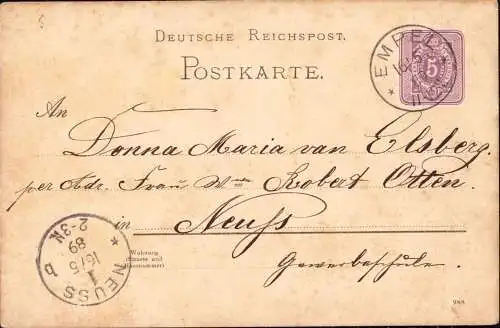 DEUTSCHE REICHSPOST.
POSTKARTE.
EMPEL
16/5
11-12V
5
An
Donna Maria van Elsberg.
per Adr. Frau Wwe Robert Otten.
in Neuss
Wohnung
(Strasse und
Hausnummer)
Gewerbeschule.
NEUSS b
16/5
89
2-3N